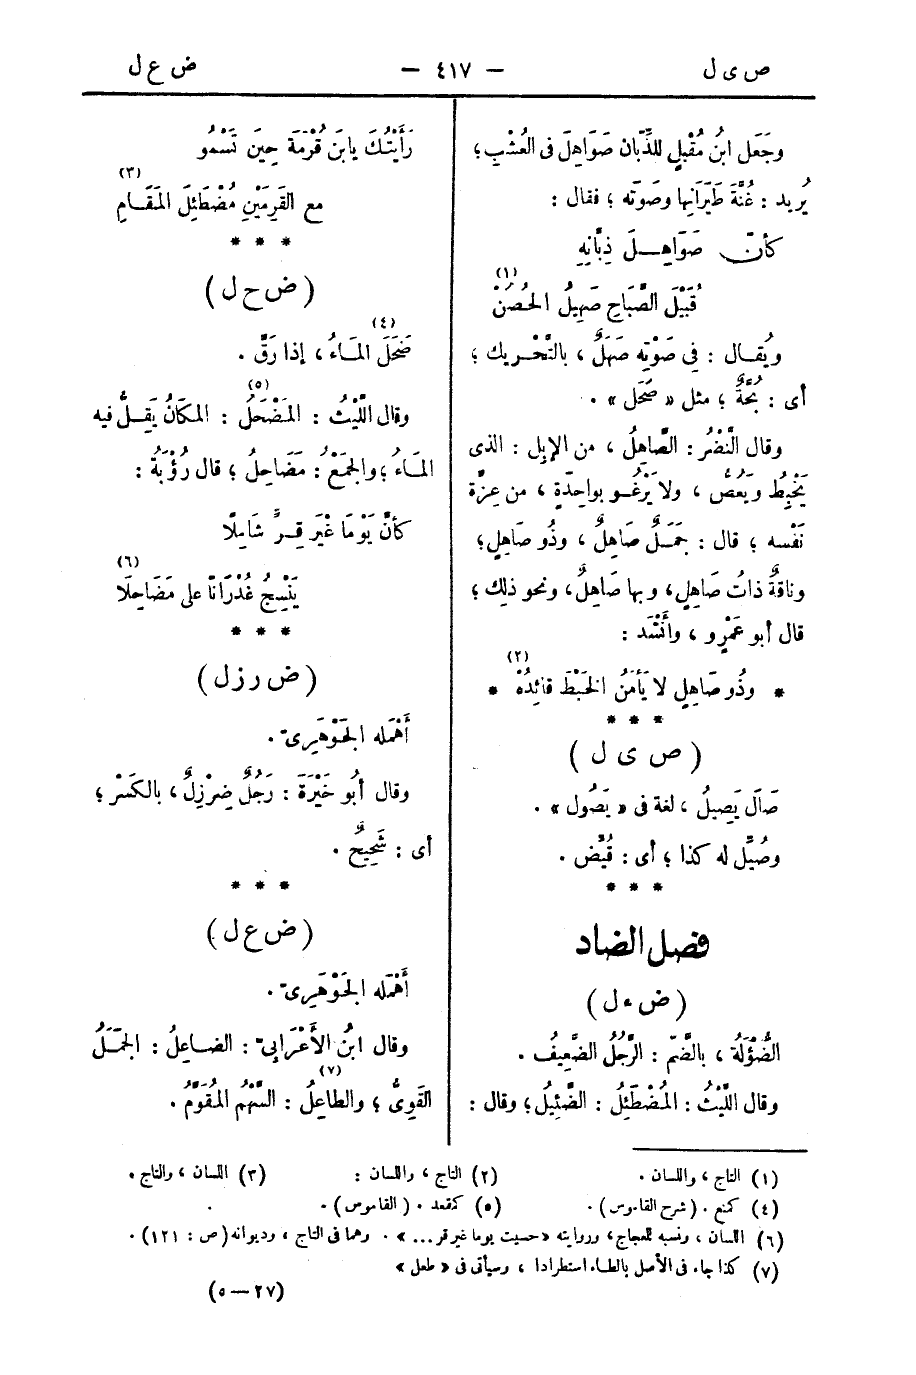 ص ی ل
— ٤١٧ —
ض ع ل
وجَعَل ابنُ مُقْبِلٍ للذِّبّان صَوَاهِلَ فى العُشْبِ ؛
يُريد : غُنَّةَ طَيَرَانِها وصَوتَه ؛ فقال :
كأنّ صَوَاهِـلَ ذِبَّانِهِ
قُبَيْلَ الصَّبَاحِ صَهِيلُ الحُصُنْ (١)
ويُقـال : فى صَوْتِه صَهَلٌ ، بالتَّحْريك ؛
أى : بُحَّةٌ ؛ مثل « صَحَل » .
وقال النَّضْرُ : الصَّاهِلُ ، من الإبل : الذى
يَخْبِطُ ويَعَضُّ ، ولا يَرْغُـو بواحِدَةٍ ، من عِزَّة
نَفْسه ؛ قال : جَمَـلٌ صَاهِلٌ ، وذُو صَاهِلٍ ؛
وناقةٌ ذاتُ صَاهِلٍ ، وبها صَاهِلٌ ، ونحو ذلك ؛
قال أبو عَمْرٍو ، وأَنْشَد :
* وذُو صَاهِلٍ لا يَأمَنُ الخَبْطَ قائِدُهْ (٢) *
* * *
( ص ى ل )
صَالَ يَصِيلُ ، لغة فى « يَصُول » .
وصُيِّل له كذا ؛ أى : قُيِّض .
* * *
فصل الضاد
( ض ء ل )
الضُّؤَلَةُ ، بالضَّمّ : الرَّجُلُ الضَّعِيفُ .
وقال اللَّيْثُ : المُضْطَئِلُ : الضَّئِيلُ ؛ وقال :
رَأَيْتُكَ يابنَ قُرْمَةَ حِينَ تَسْمُو
مع القَرِمَيْنِ مُضْطَئِلَ المَقَـامِ (٣)
* * *
( ض ح ل )
ضَحَلَ المَـاءُ ، إذا رَقَّ . (٤)
وقال اللَّيْثُ : المَضْحَلُ (٥) : المكَانُ يَقِـلُّ فيه
المَـاءُ ؛ والجمْعُ : مَضَاحِلُ ؛ قال رُؤْبَةُ :
كأنَّ يَوْمًا غَيْرَ قِـرٍّ شَامِلًا
يَنْسِجُ غُدْرَانًا على مَضَاحِلَا (٦)
* * *
( ض ر ز ل )
أَهْمَله الجَوْهَرِىّ .
وقال أبُو خَيْرَةَ : رَجُلٌ ضِرْزِلٌ ، بالكَسْرِ ؛
أى : شَحِيحٌ .
* * *
( ض ع ل )
أَهْمَله الجَوْهَرِىّ .
وقال ابنُ الأَعْرَابِىّ : الضـاعِلُ : الجَمَـلُ
القَوِىُّ ؛ والطاعِلُ (٧) : السَّهْم المُقَوَّمُ .
(١) التاج ، واللسان .
(٢) التاج ، واللسان :
(٣) اللسان ، والتاج .
(٤) كمنع . ( شرح القاموس ) .
(٥) كمقعد . ( القاموس ) .
(٦) اللسان ، ونسبه للعجاج ، وروايته «حسيت يوما غير قر... » . وهما فى التاج ، وديوانه (ص : ١٢١) .
(٧) كذا جاء فى الأصل بالطاء استطرادا ، وسيأتى فى « طعل »
(٢٧—٥)